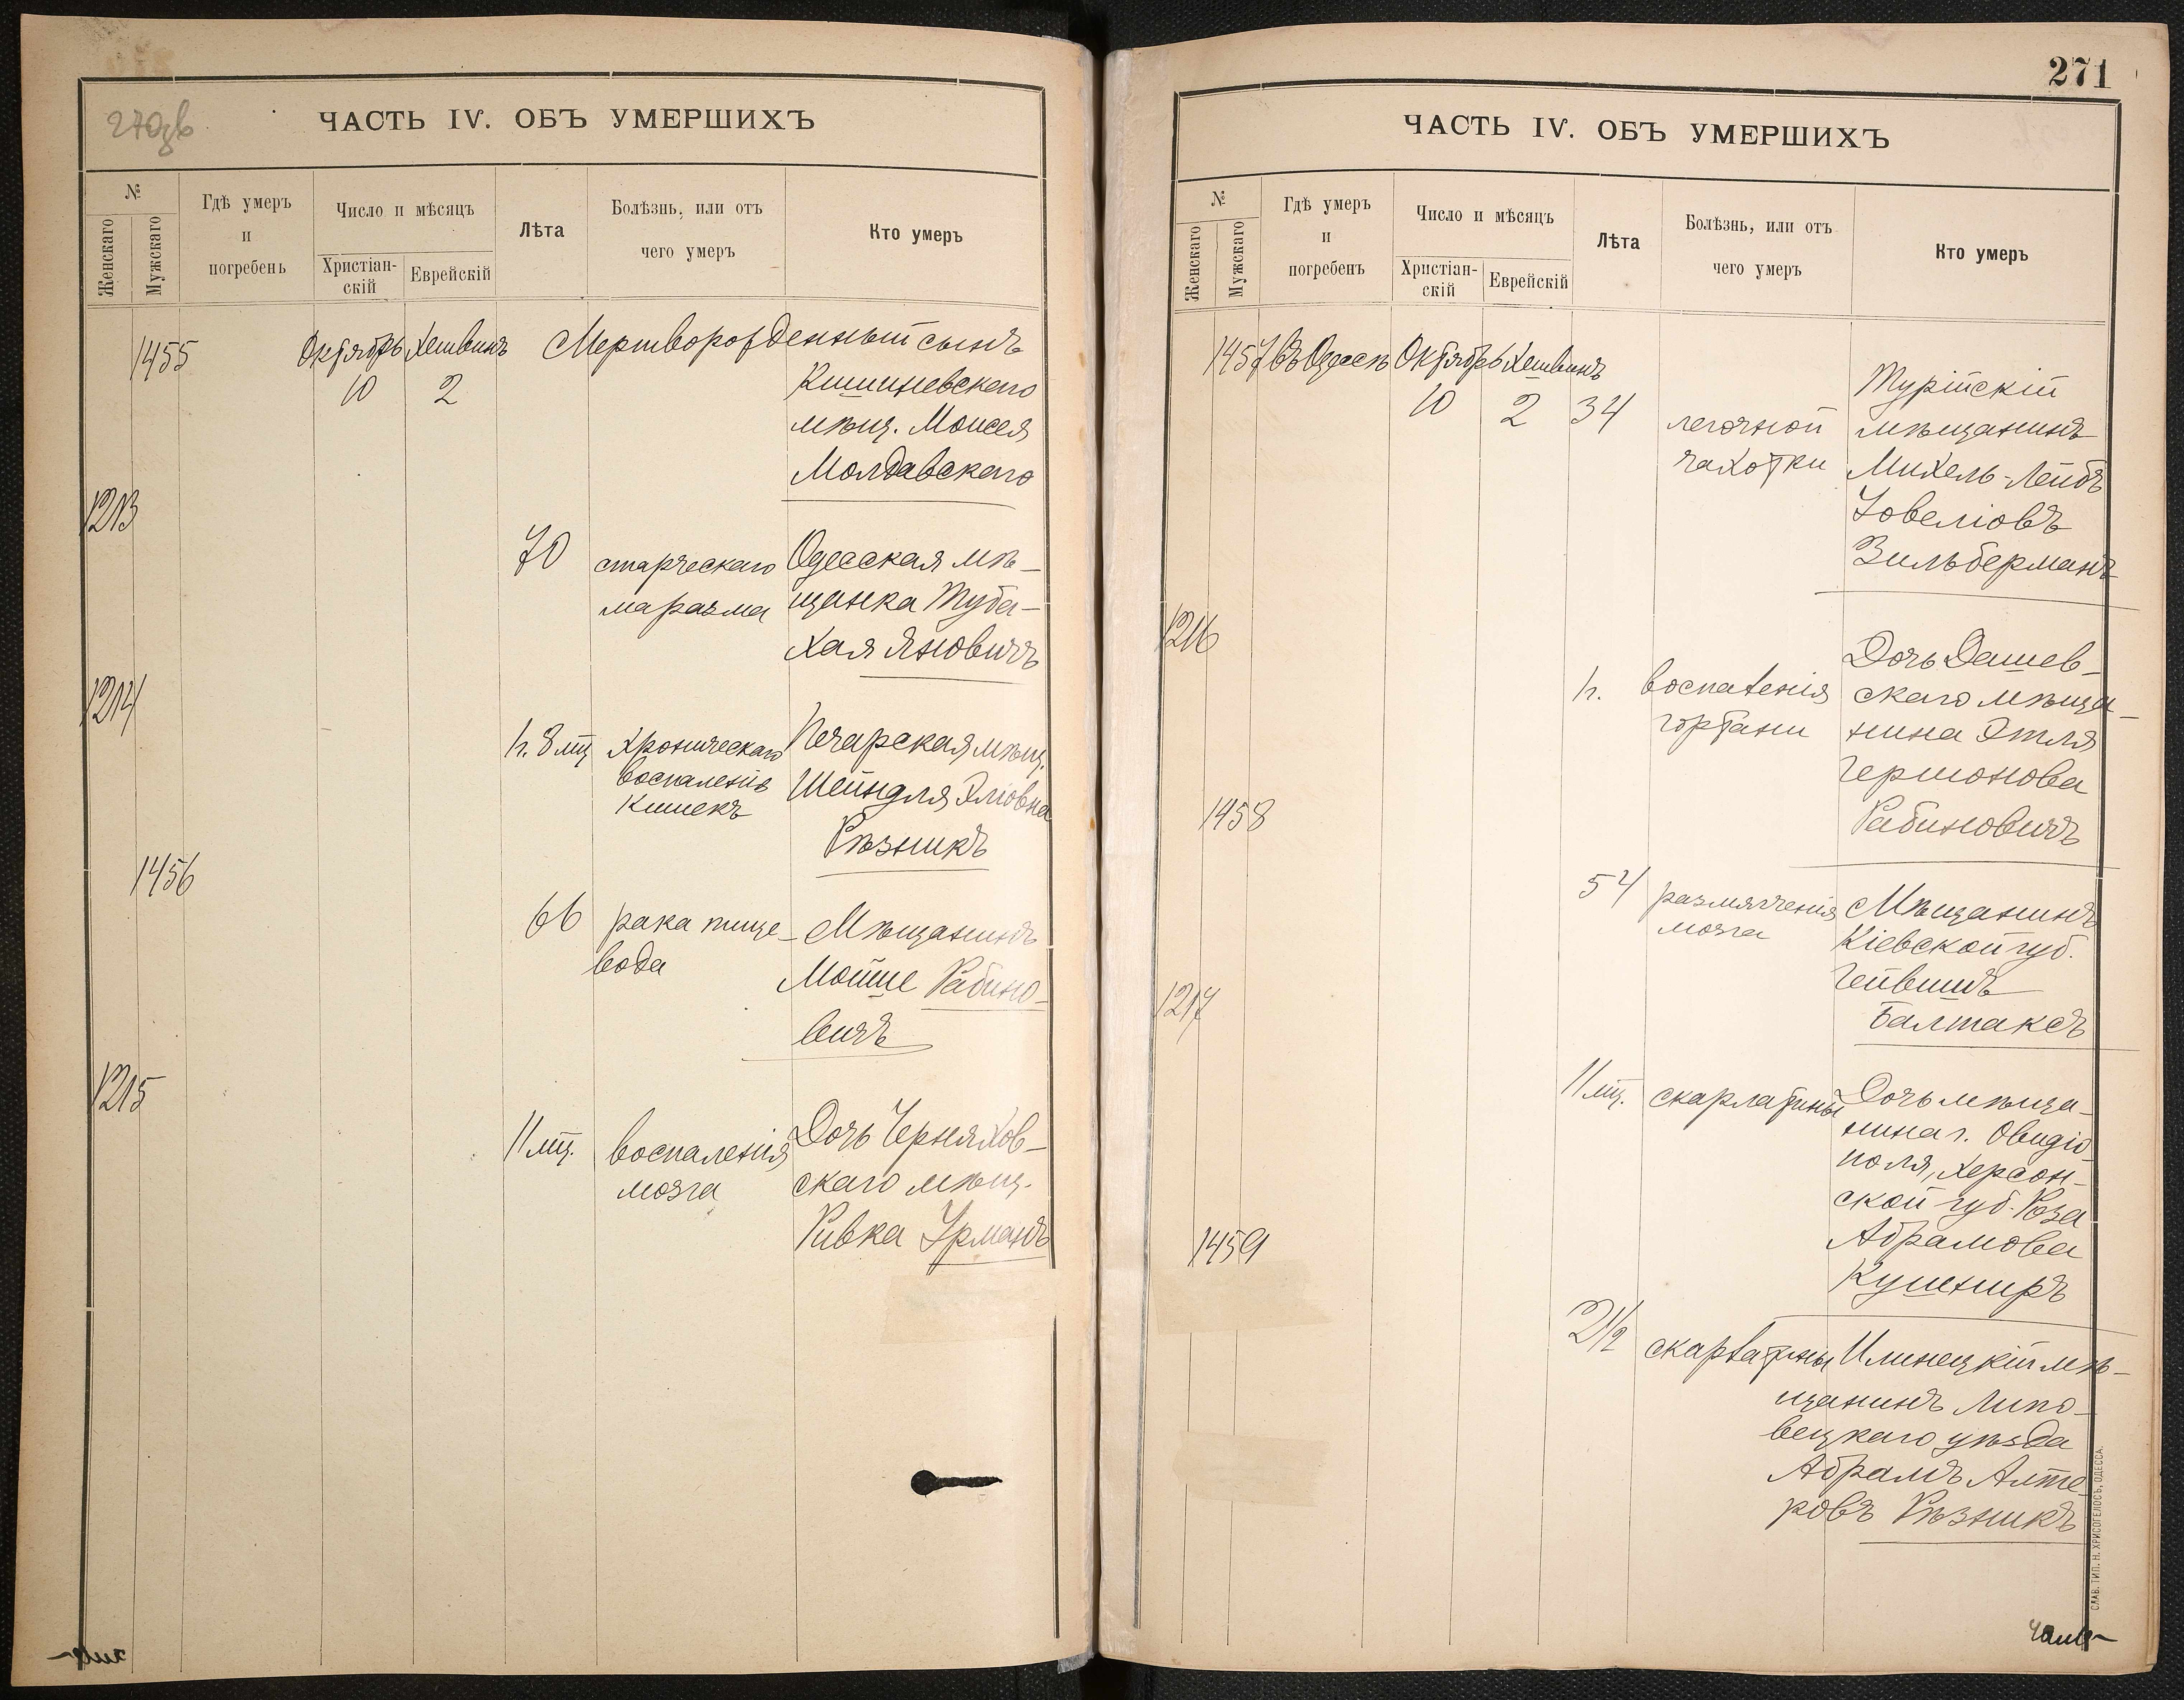 270об
ЧАСТЬ IV. ОБЪ УМЕРШИХЪ
№
Женскаго
Мужскаго
Гдѣ умеръ
и
погребенъ
Число и мѣсяцъ
Христіан-
скій
Еврейскій
Лѣта
Болѣзнь, или отъ
чего умеръ
Кто умеръ
1455 Октябрь Хешвинъ Мертворожденный сынъ
10 2 Кишиневскаго
мѣщ. Моисея
Молдавскаго
1213
70 старческаго Одесская мѣ-
маразма щанка Туба-
Хая Яновичъ
1214
1г. 8 мц Хроническаго Печарская мѣщ.
воспаленія Шейндля Эліовна
Кишекъ
Рѣзникъ
1456
66 рака пище- Мѣщанинъ
вода Мойше Рабино-
вичъ
1215
11 мц. воспаленія Дочь Черняхов-
мозга скаго мѣщ.
Ривка Урманъ
271
ЧАСТЬ IV. ОБЪ УМЕРШИХЪ
№
Женскаго
Мужскаго
Гдѣ умеръ
и
погребенъ
Число и мѣсяцъ
Христіан-
скій
Еврейскій
Лѣта
Болѣзнь, или отъ
чего умеръ
Кто умеръ
1457 Въ Одессѣ Октябрь Хешвинъ
10 2 34 легочной Турійскій
чахотки мѣщанинъ
Михель-Лейбъ
Іовеліовъ
Зильберманъ
1216
1г. воспаленія Дочь Дашев-
гортани скаго мѣща-
нина Этля
Гершонова
Рабиновичъ
1458
54 размягченія Мѣщанинъ
мозга Кіевской губ.
Гейвишъ
Балтаксъ
1217
11 мц. скарлатины Дочь мѣща-
нина г. Овидіо-
поля, Херсон-
ской губ. Роза
Абрамова
Кушниръ
1459
2 1/2 скарлатины Илинецкій мѣ-
щанинъ Липо-
вецкаго уѣзда
Абрамъ Алте-
ровъ Рѣзникъ
СЛАВ. ТИП. Н. ХРИСОГЕЛОСЪ, ОДЕССА.